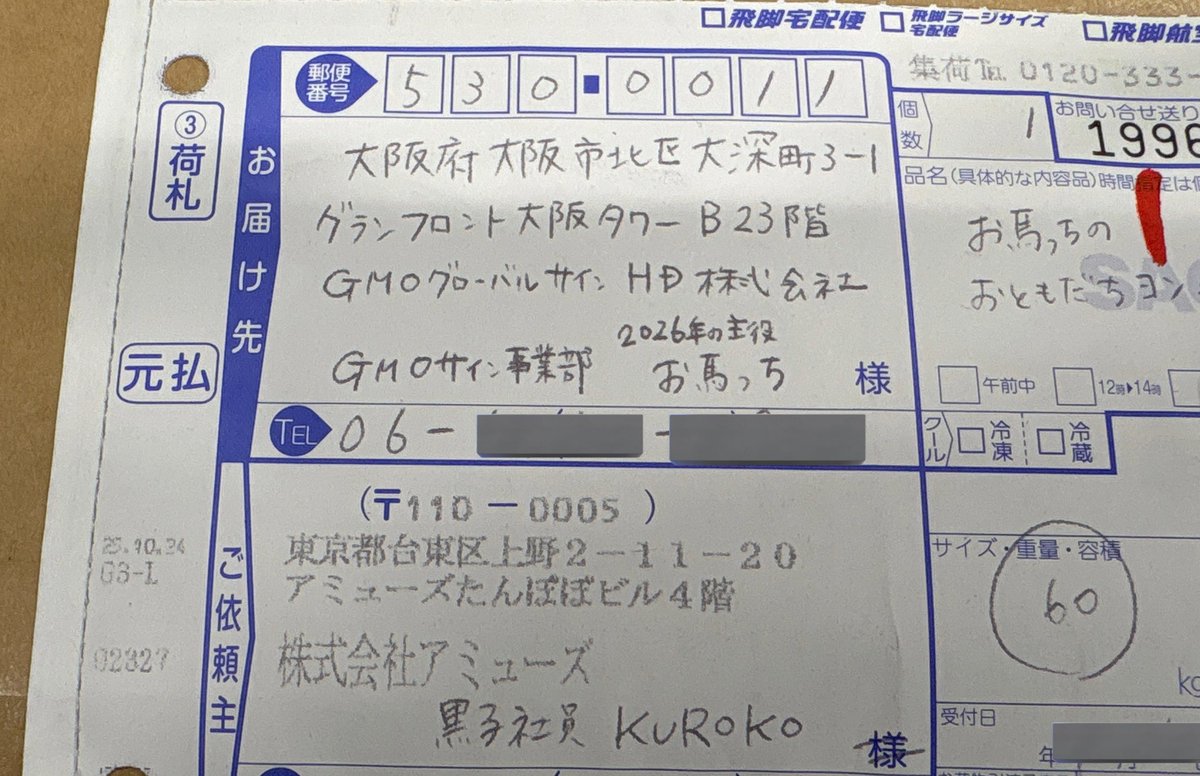 □飛脚宅配便 □飛脚ラージサイズ宅配便 □飛脚航空
集荷TEL 0120-333-
③荷札
元払
お届け先
郵便番号 530-0011
大阪府大阪市北区大深町3-1
グランフロント大阪タワーB23階
GMOグローバルサインHD株式会社
2026年の主役
GMOサイン事業部 お馬っち 様
TEL 06-
個数 1
お問い合せ送り
1996
品名(具体的な内容品)時間指定は
お馬っちの
おともだちヨン
午前中 12時▶14時
クール 冷凍 冷蔵
ご依頼主
(〒110-0005 )
東京都台東区上野2-11-20
アミューズたんぽぽビル4階
株式会社アミューズ
黒子社員 KUROKO 様
25.10.24
G3-L
02327
サイズ・重量・容積
60
kg
受付日
年